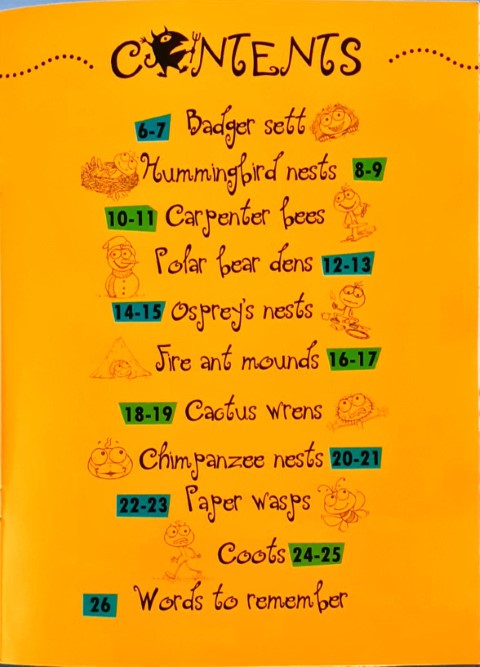 CONTENTS
6-7 Badger sett
Hummingbird nests 8-9
10-11 Carpenter bees
Polar bear dens 12-13
14-15 Osprey's nests
Fire ant mounds 16-17
18-19 Cactus wrens
Chimpanzee nests 20-21
22-23 Paper wasps
Coots 24-25
26 Words to remember